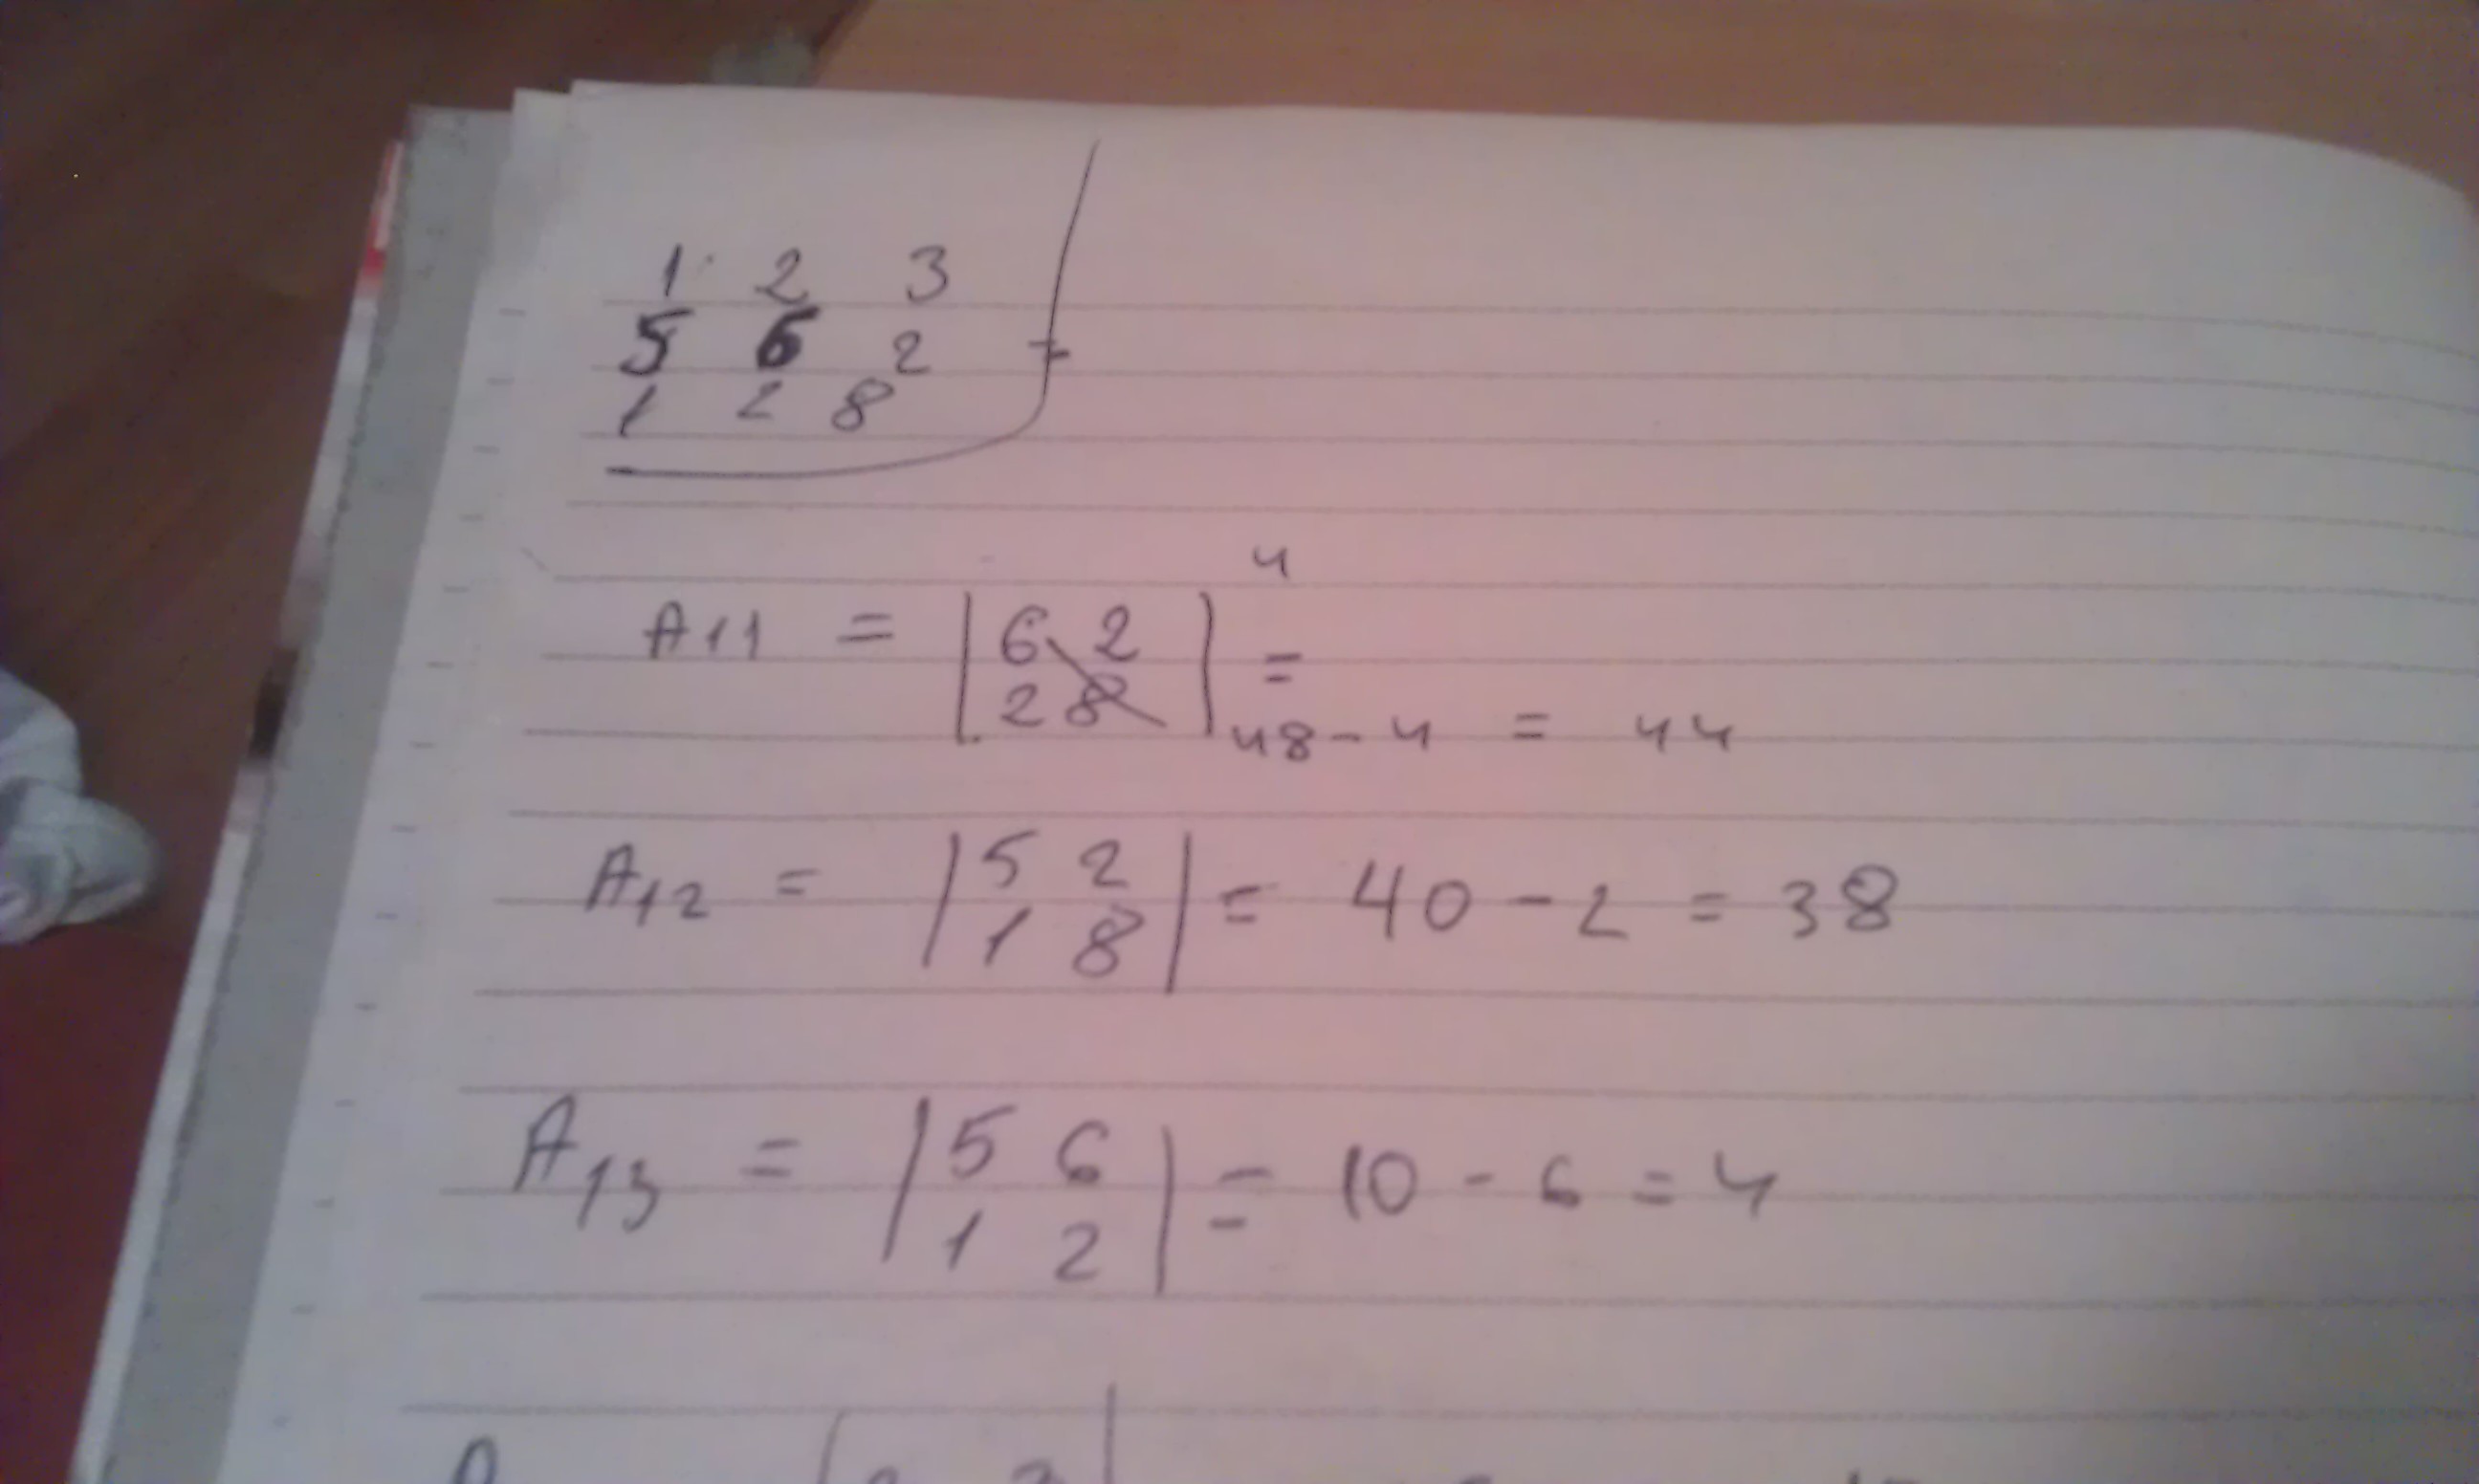 1 2 3
5 6 2
1 2 8
4
A11 = | 6 2 | =
| 2 8 | 48 - 4 = 44
A12 = | 5 2 | = 40 - 2 = 38
| 1 8 |
A13 = | 5 6 | = 10 - 6 = 4
| 1 2 |